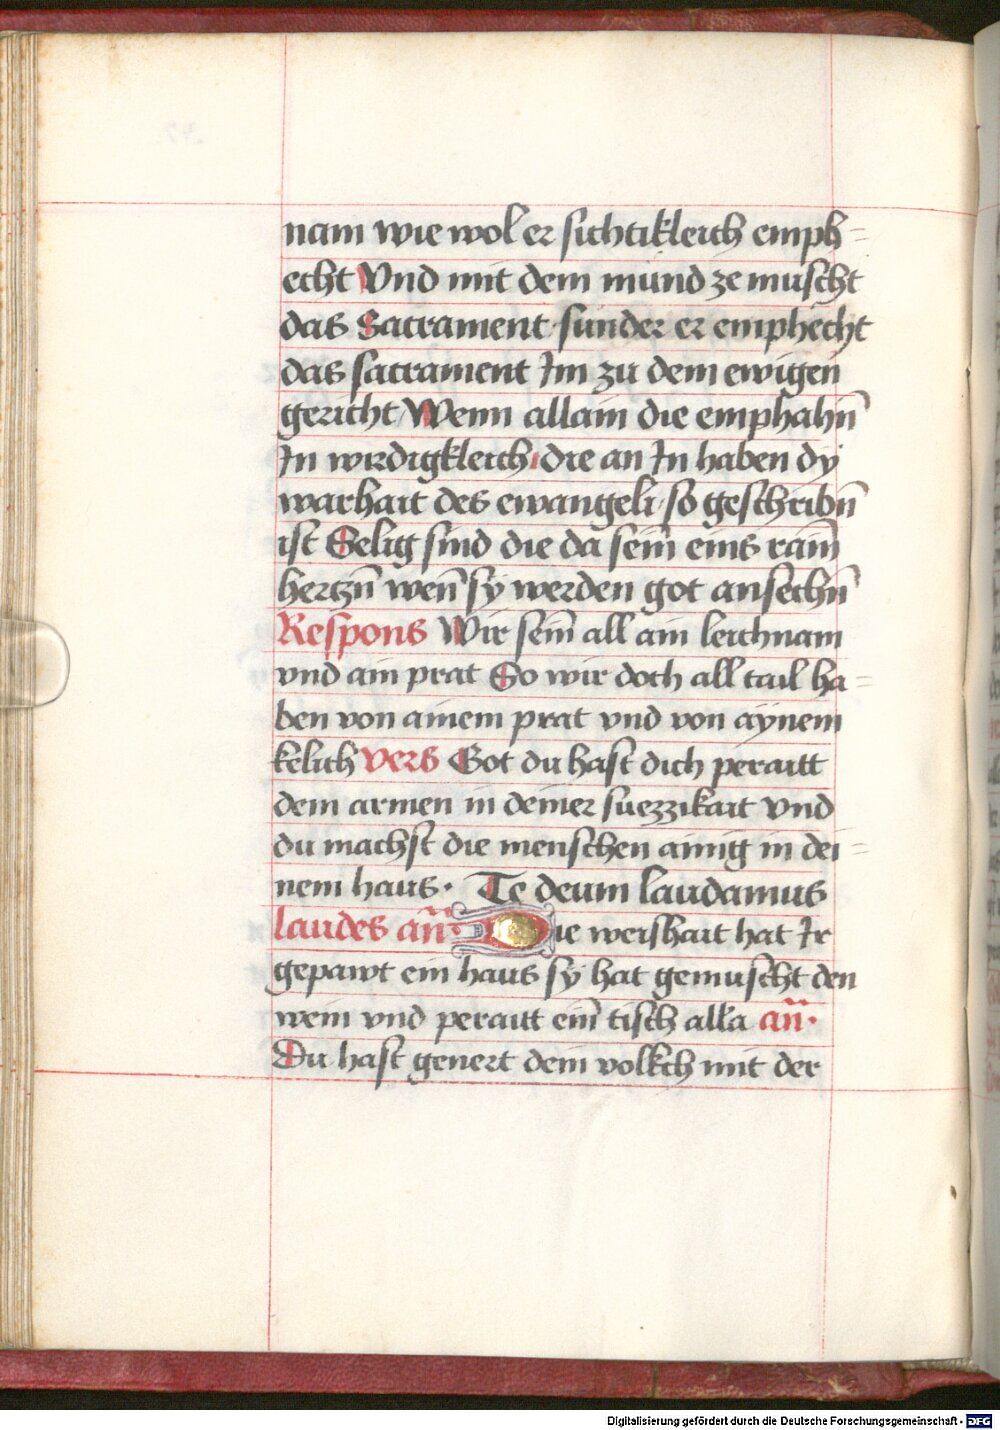 nam wie wol er sichtikleich emph=
echt Vnd mit dem mund ze muscht
das Sacrament sunder er emphecht
das sacrament Im zu dem ewigen
gericht Wenn allain die emphahn̄
In wirdigkleich die an In haben dy
warhait des ewangeli so geschribn̄
ist Selig sind die da sein̄ eins rain̄
hertzn̄ wen̄ sy werden got ansechn̄
Respons Wir sein̄ all ain leichnam
vnd ain prat So wir doch all tail ha=
ben von ainem prat vnd von aÿnem
kelich vers Got du hast dich peraitt
dem armen in deiner suezzikait vnd
du machst die menschen ainig in dei=
nem haus · Te deum laudamus
laudes an̄· Die weishait hat Ir
gepawt ein haus sy hat gemuscht den
wein vnd peraitt ein̄ tisch alla an̄·
Du hast genert dein volkch mit der
Digitalisierung gefördert durch die Deutsche Forschungsgemeinschaft - DFG